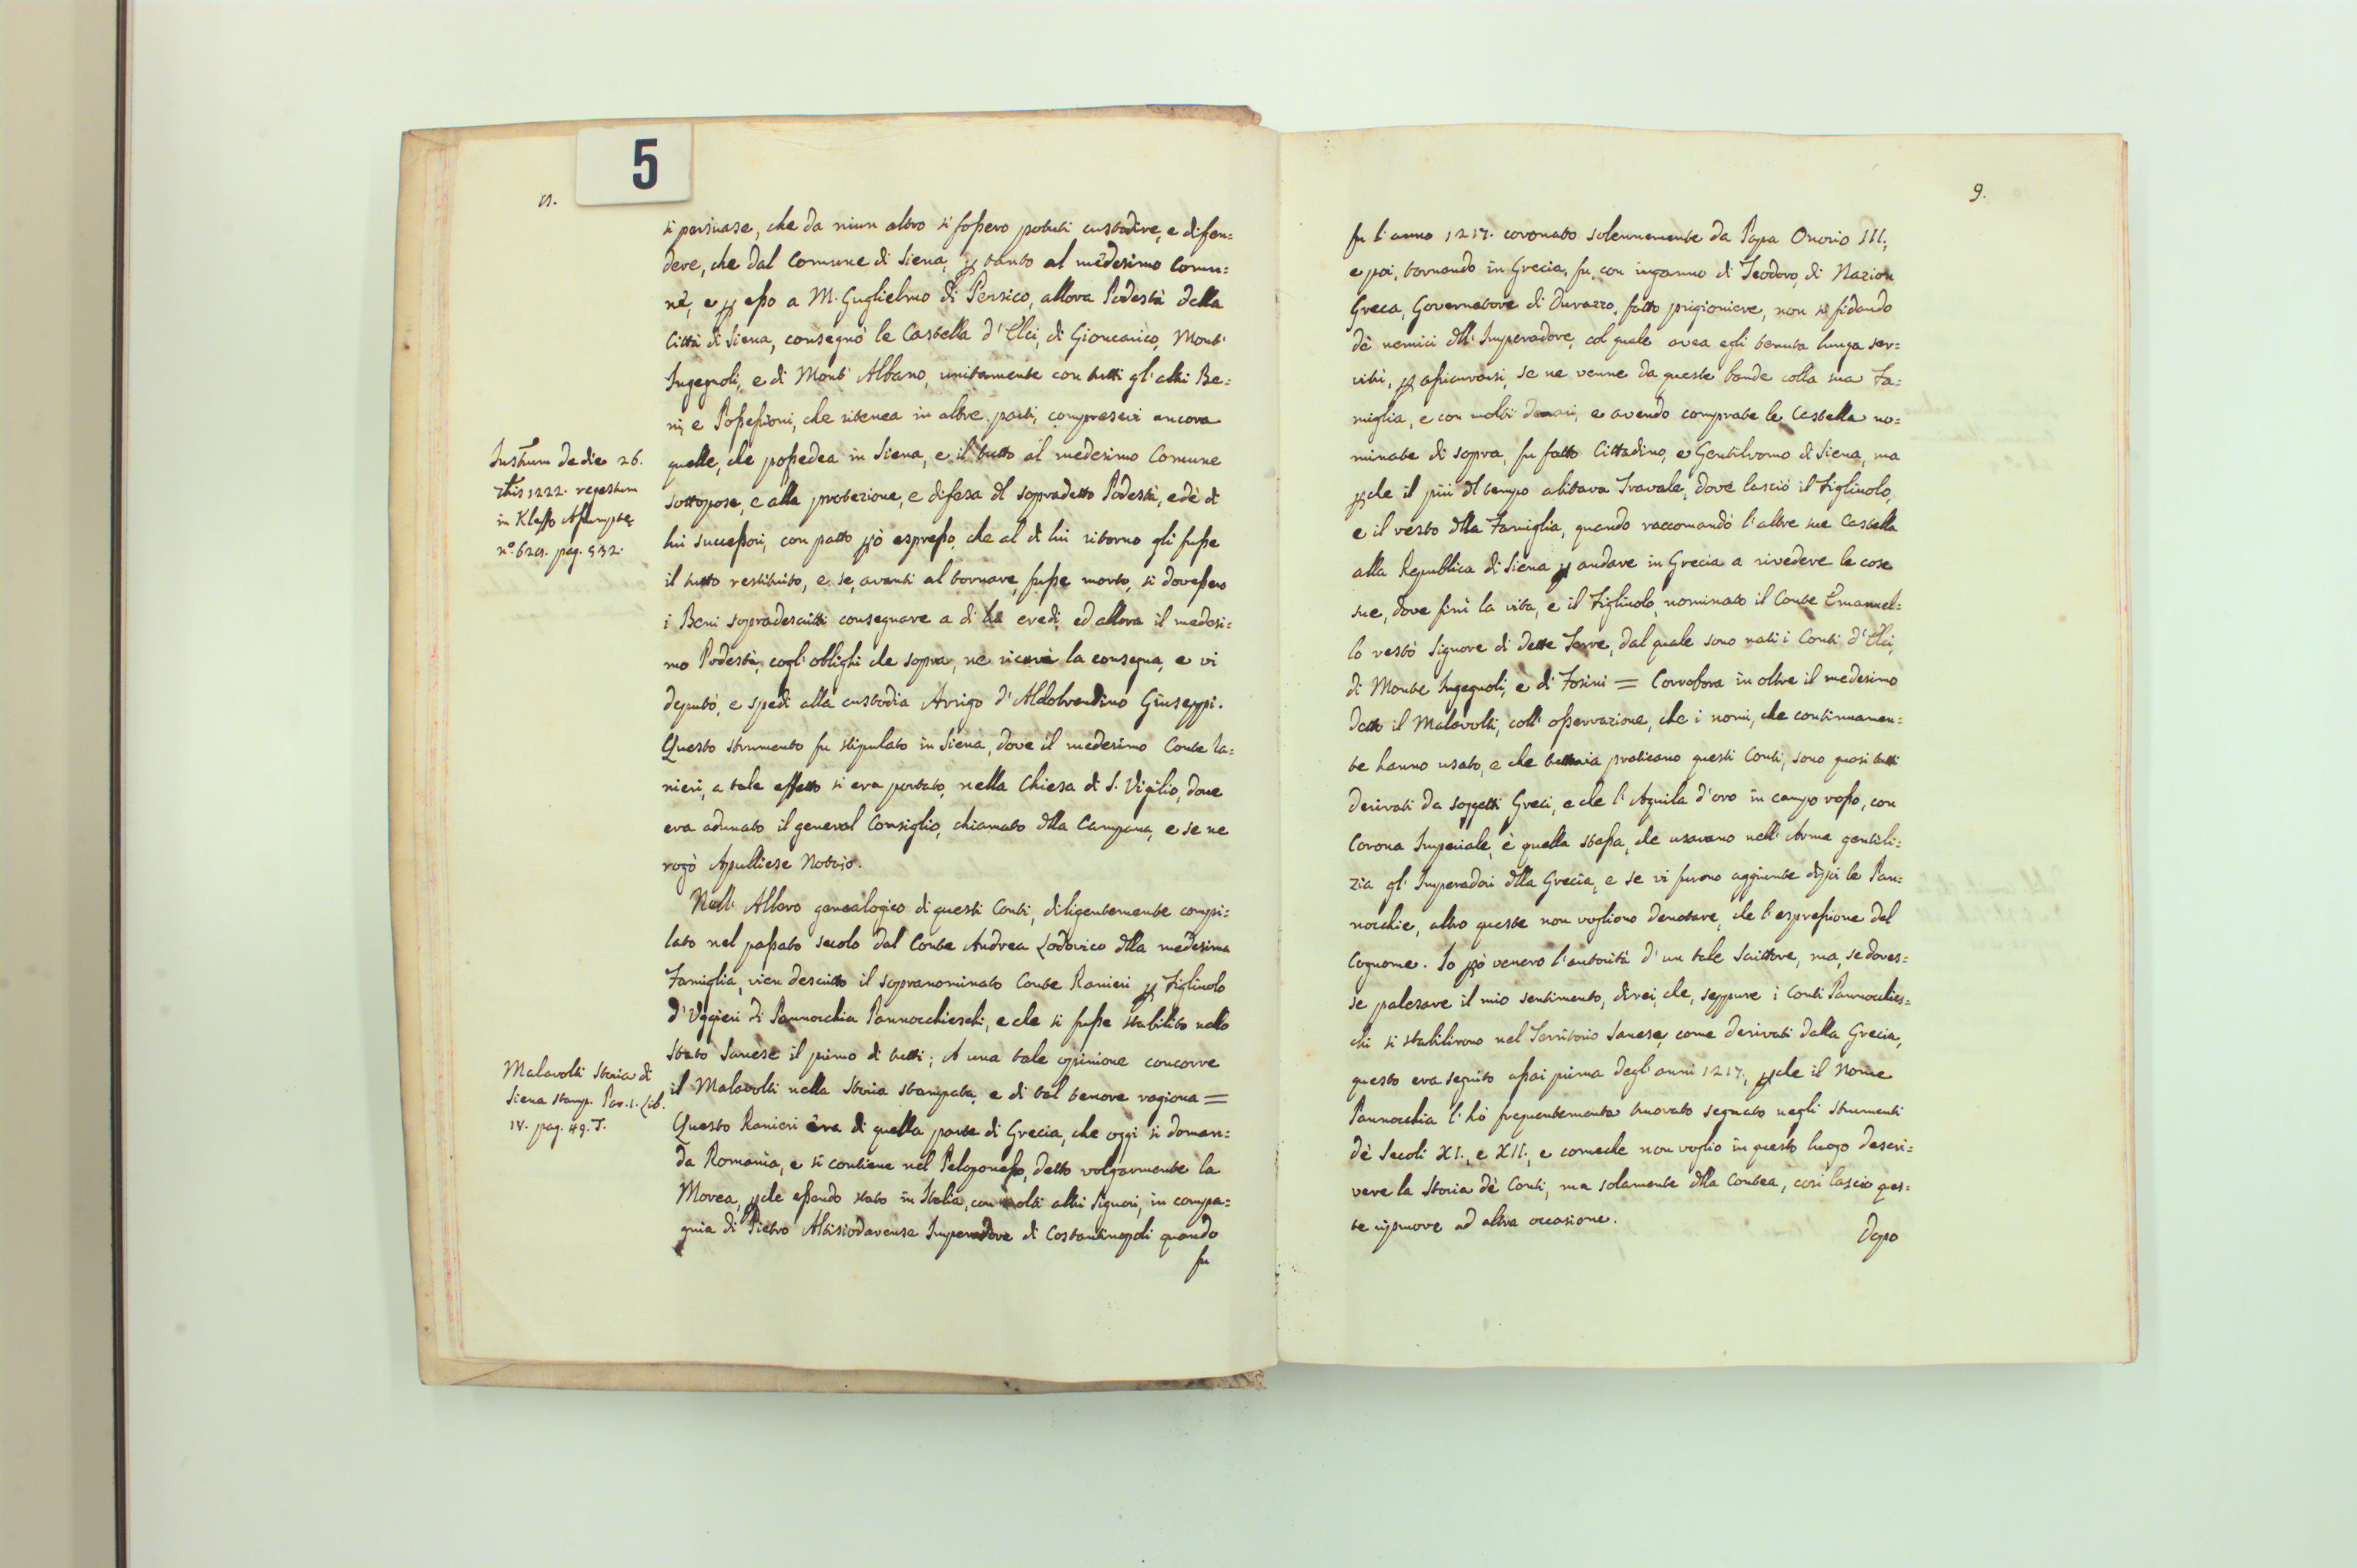 5
8.
si persuase, che da niun altro si fossero potuti custodire, e difen=
dere, che dal Comune di Siena, p tanto al medesimo Comu=
ne, e p esso a M. Guglielmo di Persico, allora Podestà della
Città di Siena, consegnò le Castella d'Elci, di Gioncarico, Mont'
Ingegnoli, e di Mont' Albano, unitamente con tutti gl'altri Be=
ni, e Possessioni, che ritenea in altre parti, compresevi ancora
quelle, che possedea in Siena, e il tutto al medesimo Comune
sottopose, e alla protezione, e difesa dl sopradetto Podestà, e dè di
lui successori, con patto pò espresso, che al di lui ritorno gli fusse
il tutto restituito, e se, avanti al tornare, fusse morto, si dovessero
i Beni sopradescritti consegnare a di lui eredi, ed allora il medesi=
mo Podestà, cogl'oblighi che sopra, ne ricevè la consegna, e vi
deputò, e spedì alla custodia Arrigo d'Aldobrandino Giuseppi.
Questo strumento fu stipulato in Siena, dove il medesimo Conte Ra=
nieri, a tale effetto si era portato, nella Chiesa di S. Vigilio, dove
era adunato il general Consiglio, chiamato dlla Campana, e se ne
rogò Apulliese Notaio.
Nell' Albero genealogico di questi Conti, diligentemente compi=
lato nel passato secolo dal Conte Andrea Lodovico dlla medesima
Famiglia, vien descritto il sopranominato Conte Ranieri p Figliuolo
d'Uggieri di Pannocchia Pannocchieschi, e che si fusse stabilito nello
Stato Sanese il primo di tutti; A una tale opinione concorre
il Malavolti nella Storia stampata, e di tal tenore ragiona =
Questo Ranieri era di quella parte di Grecia, che oggi si doman=
da Romania, e si contiene nel Peloponesso, detto volgarmente la
Morea, pche essendo stato in Italia, con molti altri Signori, in compa=
gnia di Pietro Altisiodorense Imperadore di Costantinopoli quando
fu
Instrum de die 26.
1222. registrum
in Kleffo Assumptę
nº. 628. pag. 532.
Malavolti Storia di
Siena stamp. Par. 1. Lib.
IV. pag. 49. T.
9.
fu l'anno 1217. coronato solennemente da Papa Onorio III;
e poi, tornando in Grecia, fu, con inganno di Teodoro, di Nazion
Greca, Governatore di Durazzo, fatto prigioniere, non si fidando
dè nemici dll' Imperadore, col quale avea egli tenuta lunga ser=
vitù, p assicurarsi, se ne venne da queste bande colla sua Fa=
miglia, e con molti denari, e avendo comprate le Castella no=
minate di sopra, fu fatto Cittadino, e Gentiluomo di Siena, ma
pche il più dl tempo abitava Travale, dove lasciò il Figliuolo,
e il resto dlla Famiglia, quando raccomandò l'altre sue Castella
alla Republica di Siena p andare in Grecia a rivedere le cose
sue, dove finì la vita, e il Figliuolo, nominato il Conte Emanuel=
lo restò Signore di dette Terre, dal quale sono nati i Conti d'Elci,
di Monte Ingegnoli, e di Fosini = Corrobora in oltre il medesimo
detto il Malavolti, coll' osservazione, che i nomi, che continuamen=
te hanno usato, e che tuttavia praticano questi Conti, sono quasi tutti
derivati da soggetti Greci, e che l'Aquila d'oro in campo rosso, con
Corona Imperiale, è quella stessa, che usavano nell' Arme gentili=
zia gl'Imperadori dlla Grecia, e se vi furono aggiunte dipoi le Pan=
nocchie, altro queste non vogliono denotare, che l'espressione del
Cognome. Io pò venero l'autorità d'un tale Scrittore, ma, se doves=
se palesare il mio sentimento, direi, che, seppure i Conti Pannocchies=
chi si stabilirono nel Territorio Sanese, come derivati dalla Grecia,
questo era seguito assai prima degl'anni 1217, pche il Nome
Pannocchia l'hò frequentemente truovato segnato negli strumenti
dè Secoli XI., e XII., e comeche non voglio in questo luogo descri=
vere la Storia dè Conti, ma solamente dlla Contea, così lascio ques=
te ripruove ad altra occasione.
Dopo